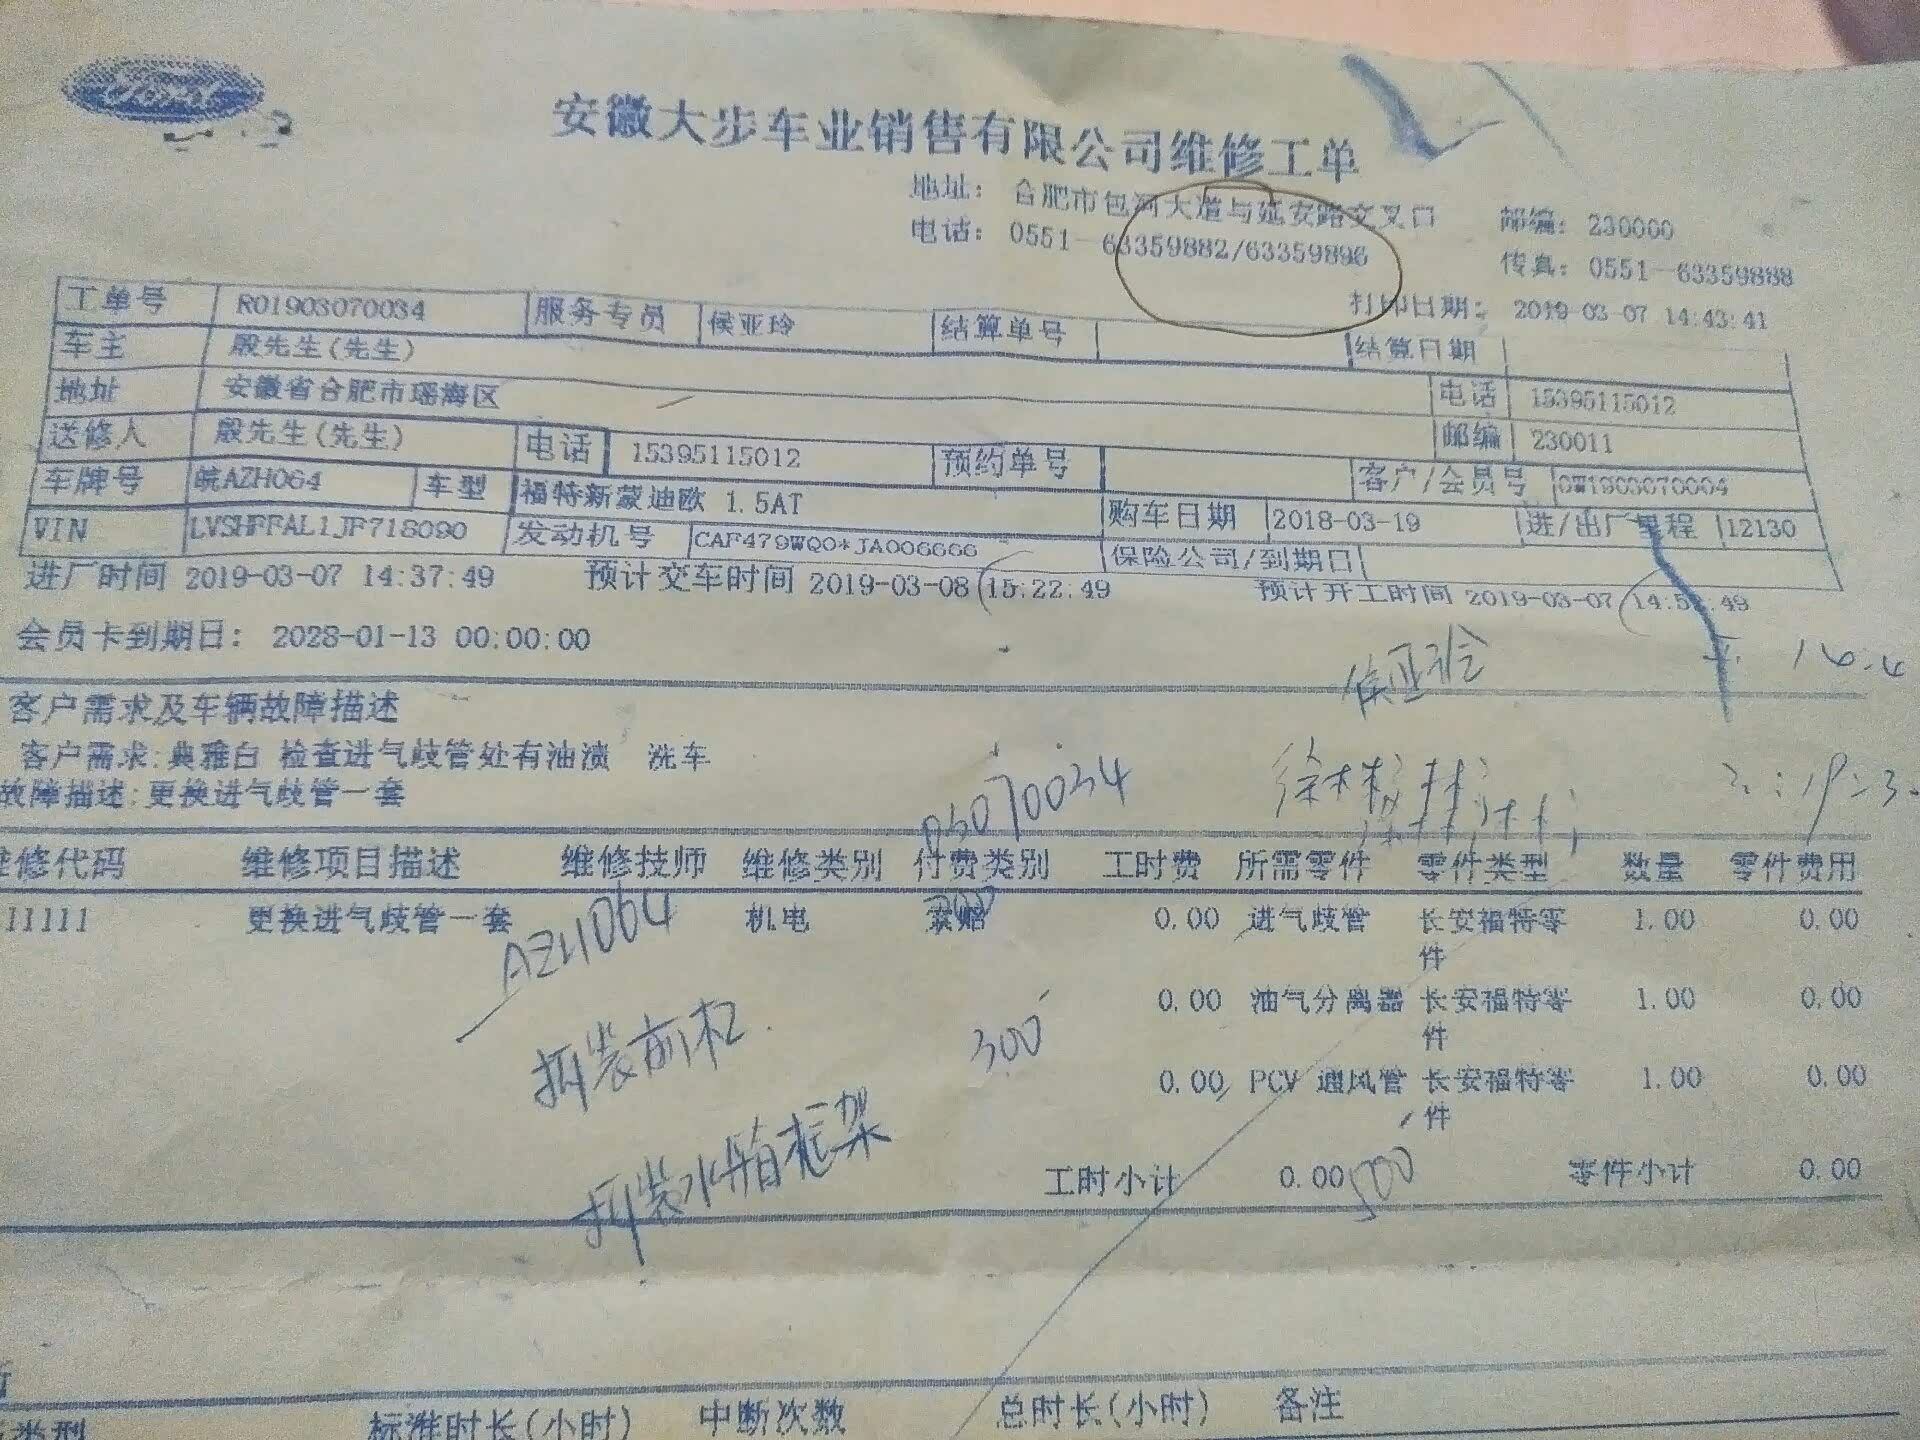 Ford
安徽大步车业销售有限公司维修工单
地址： 合肥市包河大道与延安路交叉口 邮编： 230000
电话： 0551-63359882/63359896 传真： 0551-63359888
打印日期： 2019-03-07 14:43:41
工单号 RO1903070034 服务专员 候亚玲 结算单号 结算日期
车主 殷先生(先生)
地址 安徽省合肥市瑶海区 电话 15395115012
送修人 殷先生(先生) 电话 15395115012 预约单号 邮编 230011
车牌号 皖AZH064 车型 福特新蒙迪欧 1.5AT 客户/会员号 OW1903070004
VIN LVSHFFAL1JF718090 发动机号 CAF479WQ0*JA006666 购车日期 2018-03-19 进/出厂里程 12130
保险公司/到期日
进厂时间 2019-03-07 14:37:49 预计交车时间 2019-03-08 15:22:49 预计开工时间 2019-03-07 14:52:49
会员卡到期日： 2028-01-13 00:00:00
客户需求及车辆故障描述
客户需求:典雅白 检查进气歧管处有油渍 洗车
故障描述:更换进气歧管一套
03070034
维修代码 维修项目描述 维修技师 维修类别 付费类别 工时费 所需零件 零件类型 数量 零件费用
11111 更换进气歧管一套 机电 索赔 0.00 进气歧管 长安福特零件 1.00 0.00
AZH064
0.00 油气分离器 长安福特零件 1.00 0.00
拆装前杠 300
0.00 PCV 通风管 长安福特零件 1.00 0.00
拆装水箱框架 500
工时小计 0.00 零件小计 0.00
类型 标准时长(小时) 中断次数 总时长(小时) 备注